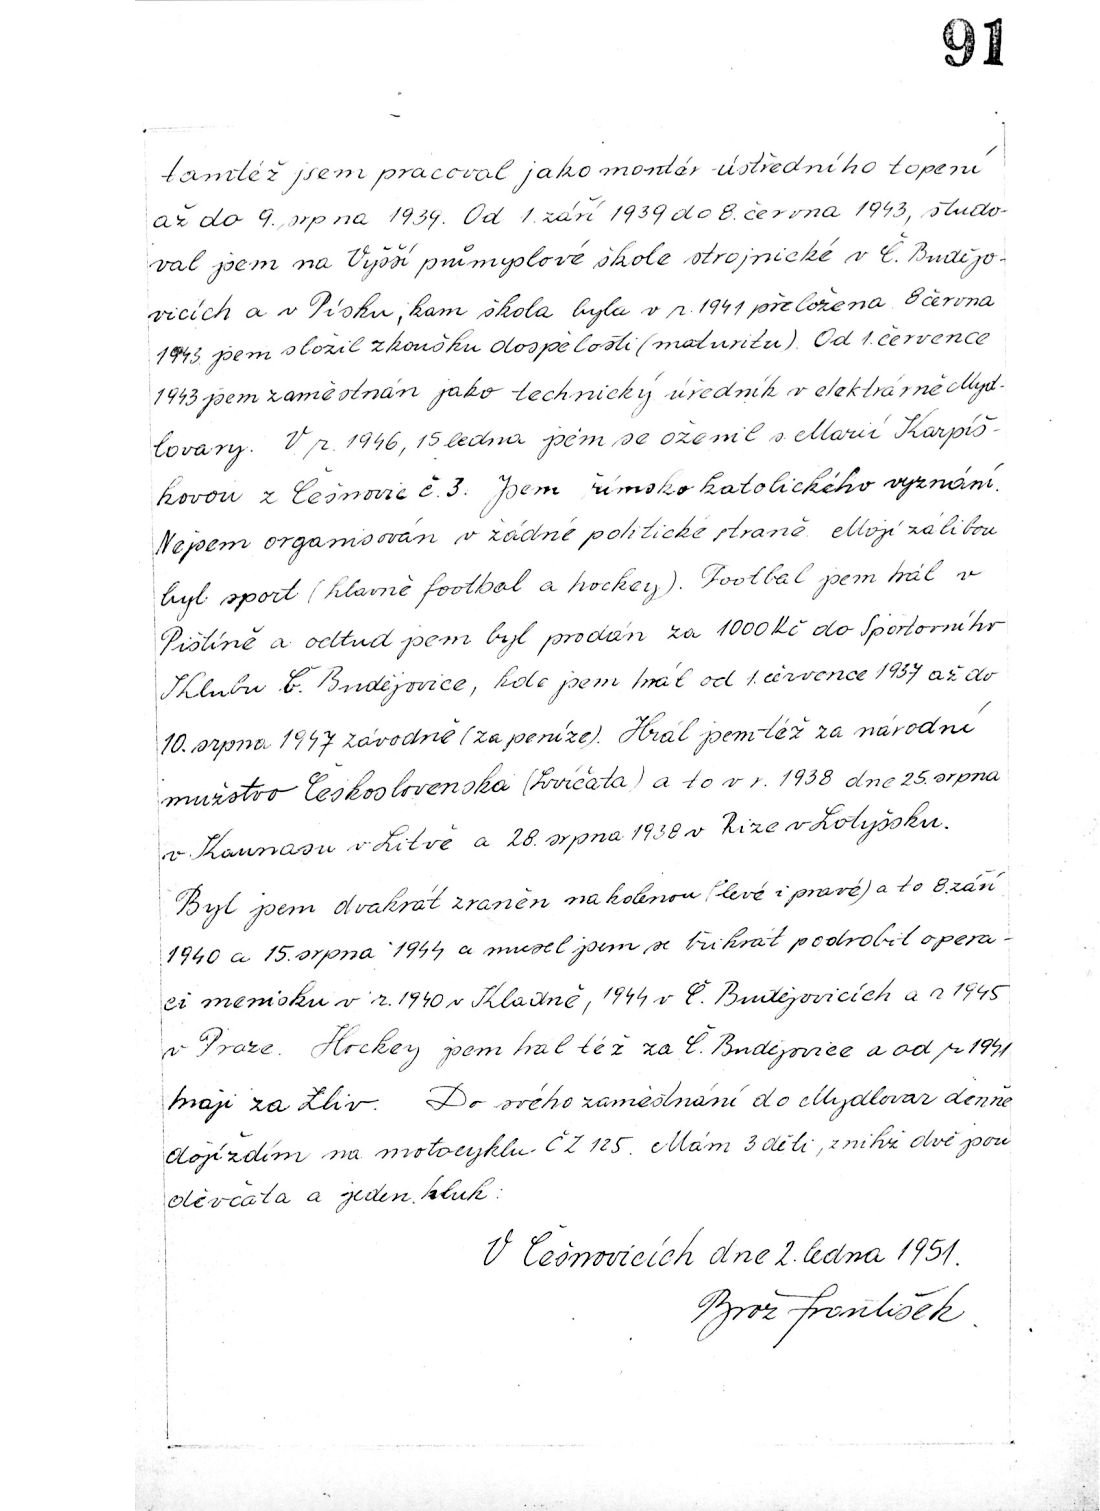 91
tamtéž jsem pracoval jako montér ústředního topení
až do 9. srpna 1939. Od 1. září 1939 do 8. června 1943, studo-
val jsem na Vyšší průmyslové škole strojnické v Č. Budějo-
vicích a v Písku, kam škola byla v r. 1941 přeložena. 8 června
1943 jsem složil zkoušku dospělosti (maturitu). Od 1. července
1943 jsem zaměstnán jako technický úředník v elektrárně Myd-
lovary. V r. 1946, 15 ledna jsem se oženil s Marií Karpíš-
kovou z Češnovic č. 3. Jsem římsko katolického vyznání.
Nejsem organisován v žádné politické straně. Mojí zálibou
byl sport (hlavně football a hockey). Footbal jsem hrál v
Pištíně a odtud jsem byl prodán za 1000 Kč do Sportovního
Klubu Č. Budějovice, kde jsem hrál od 1. července 1937 až do
10. srpna 1947 závodně (za peníze). Hrál jsem též za národní
mužstvo Československa (Lvíčata) a to v r. 1938 dne 25. srpna
v Kaunasu v Litvě a 28. srpna 1938 v Rize v Lotyšsku.
Byl jsem dvakrát zraněn na kolenou (levé i pravé) a to 8. září
1940 a 15. srpna 1944 a musel jsem se třikrát podrobit opera-
ci menisku v r. 1940 v Kladně, 1944 v Č. Budějovicích a r 1945
v Praze. Hockey jsem hrál též za Č. Budějovice a od r 1941
hraji za Zliv. Do svého zaměstnání do Mydlovar denně
dojíždím na motocyklu ČZ 125. Mám 3 děti, z nihž dvě jsou
děvčata a jeden kluk.
V Češnovicích dne 2. ledna 1951.
Brož František